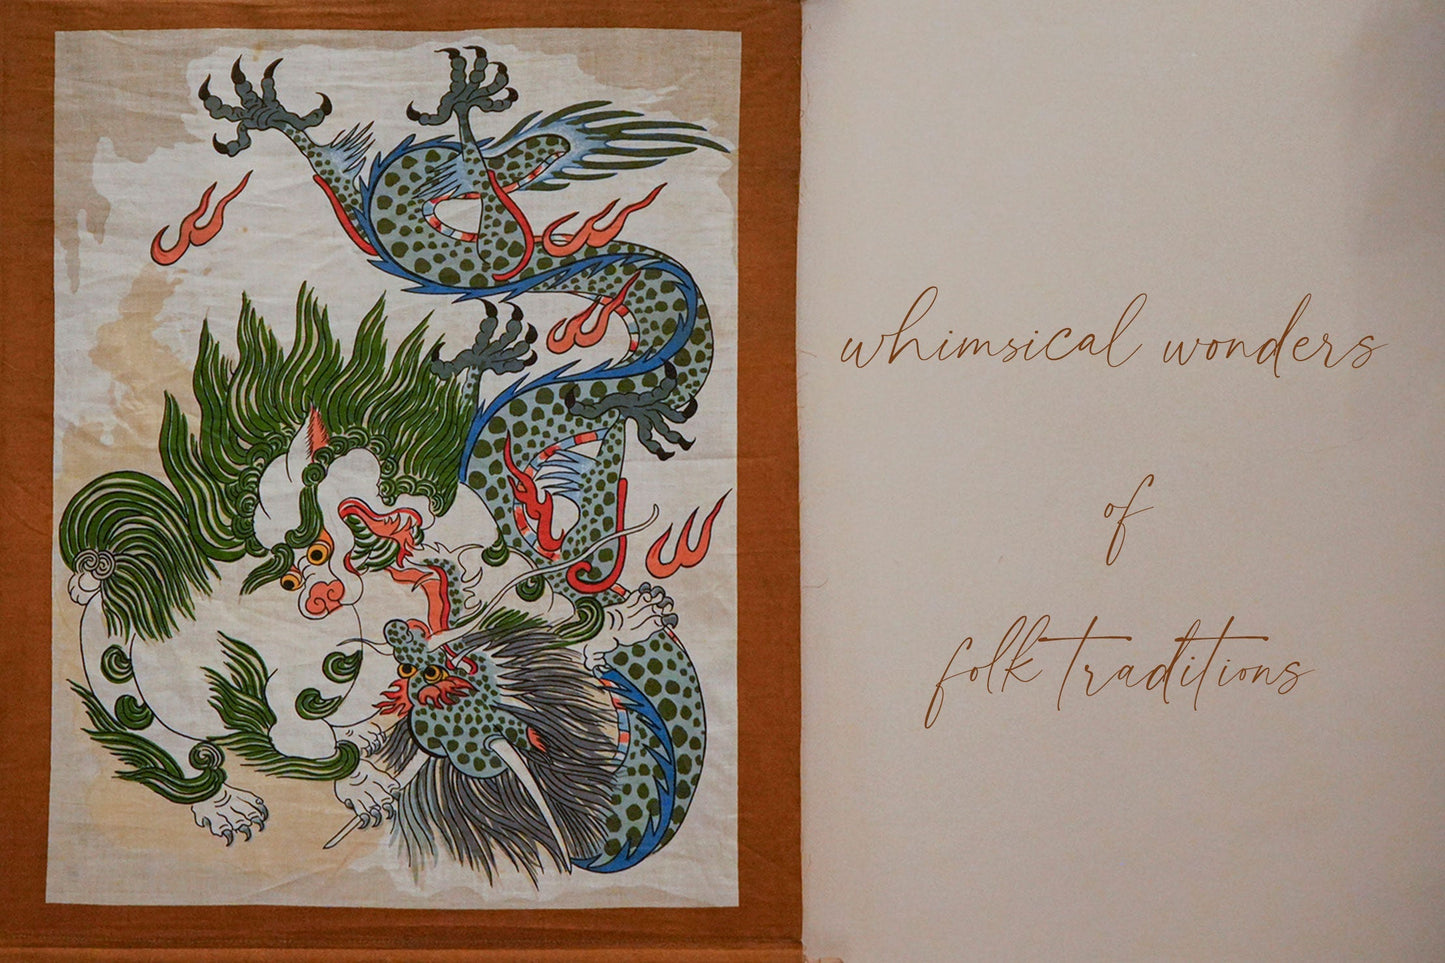 whimsical wonders
of
folk traditions